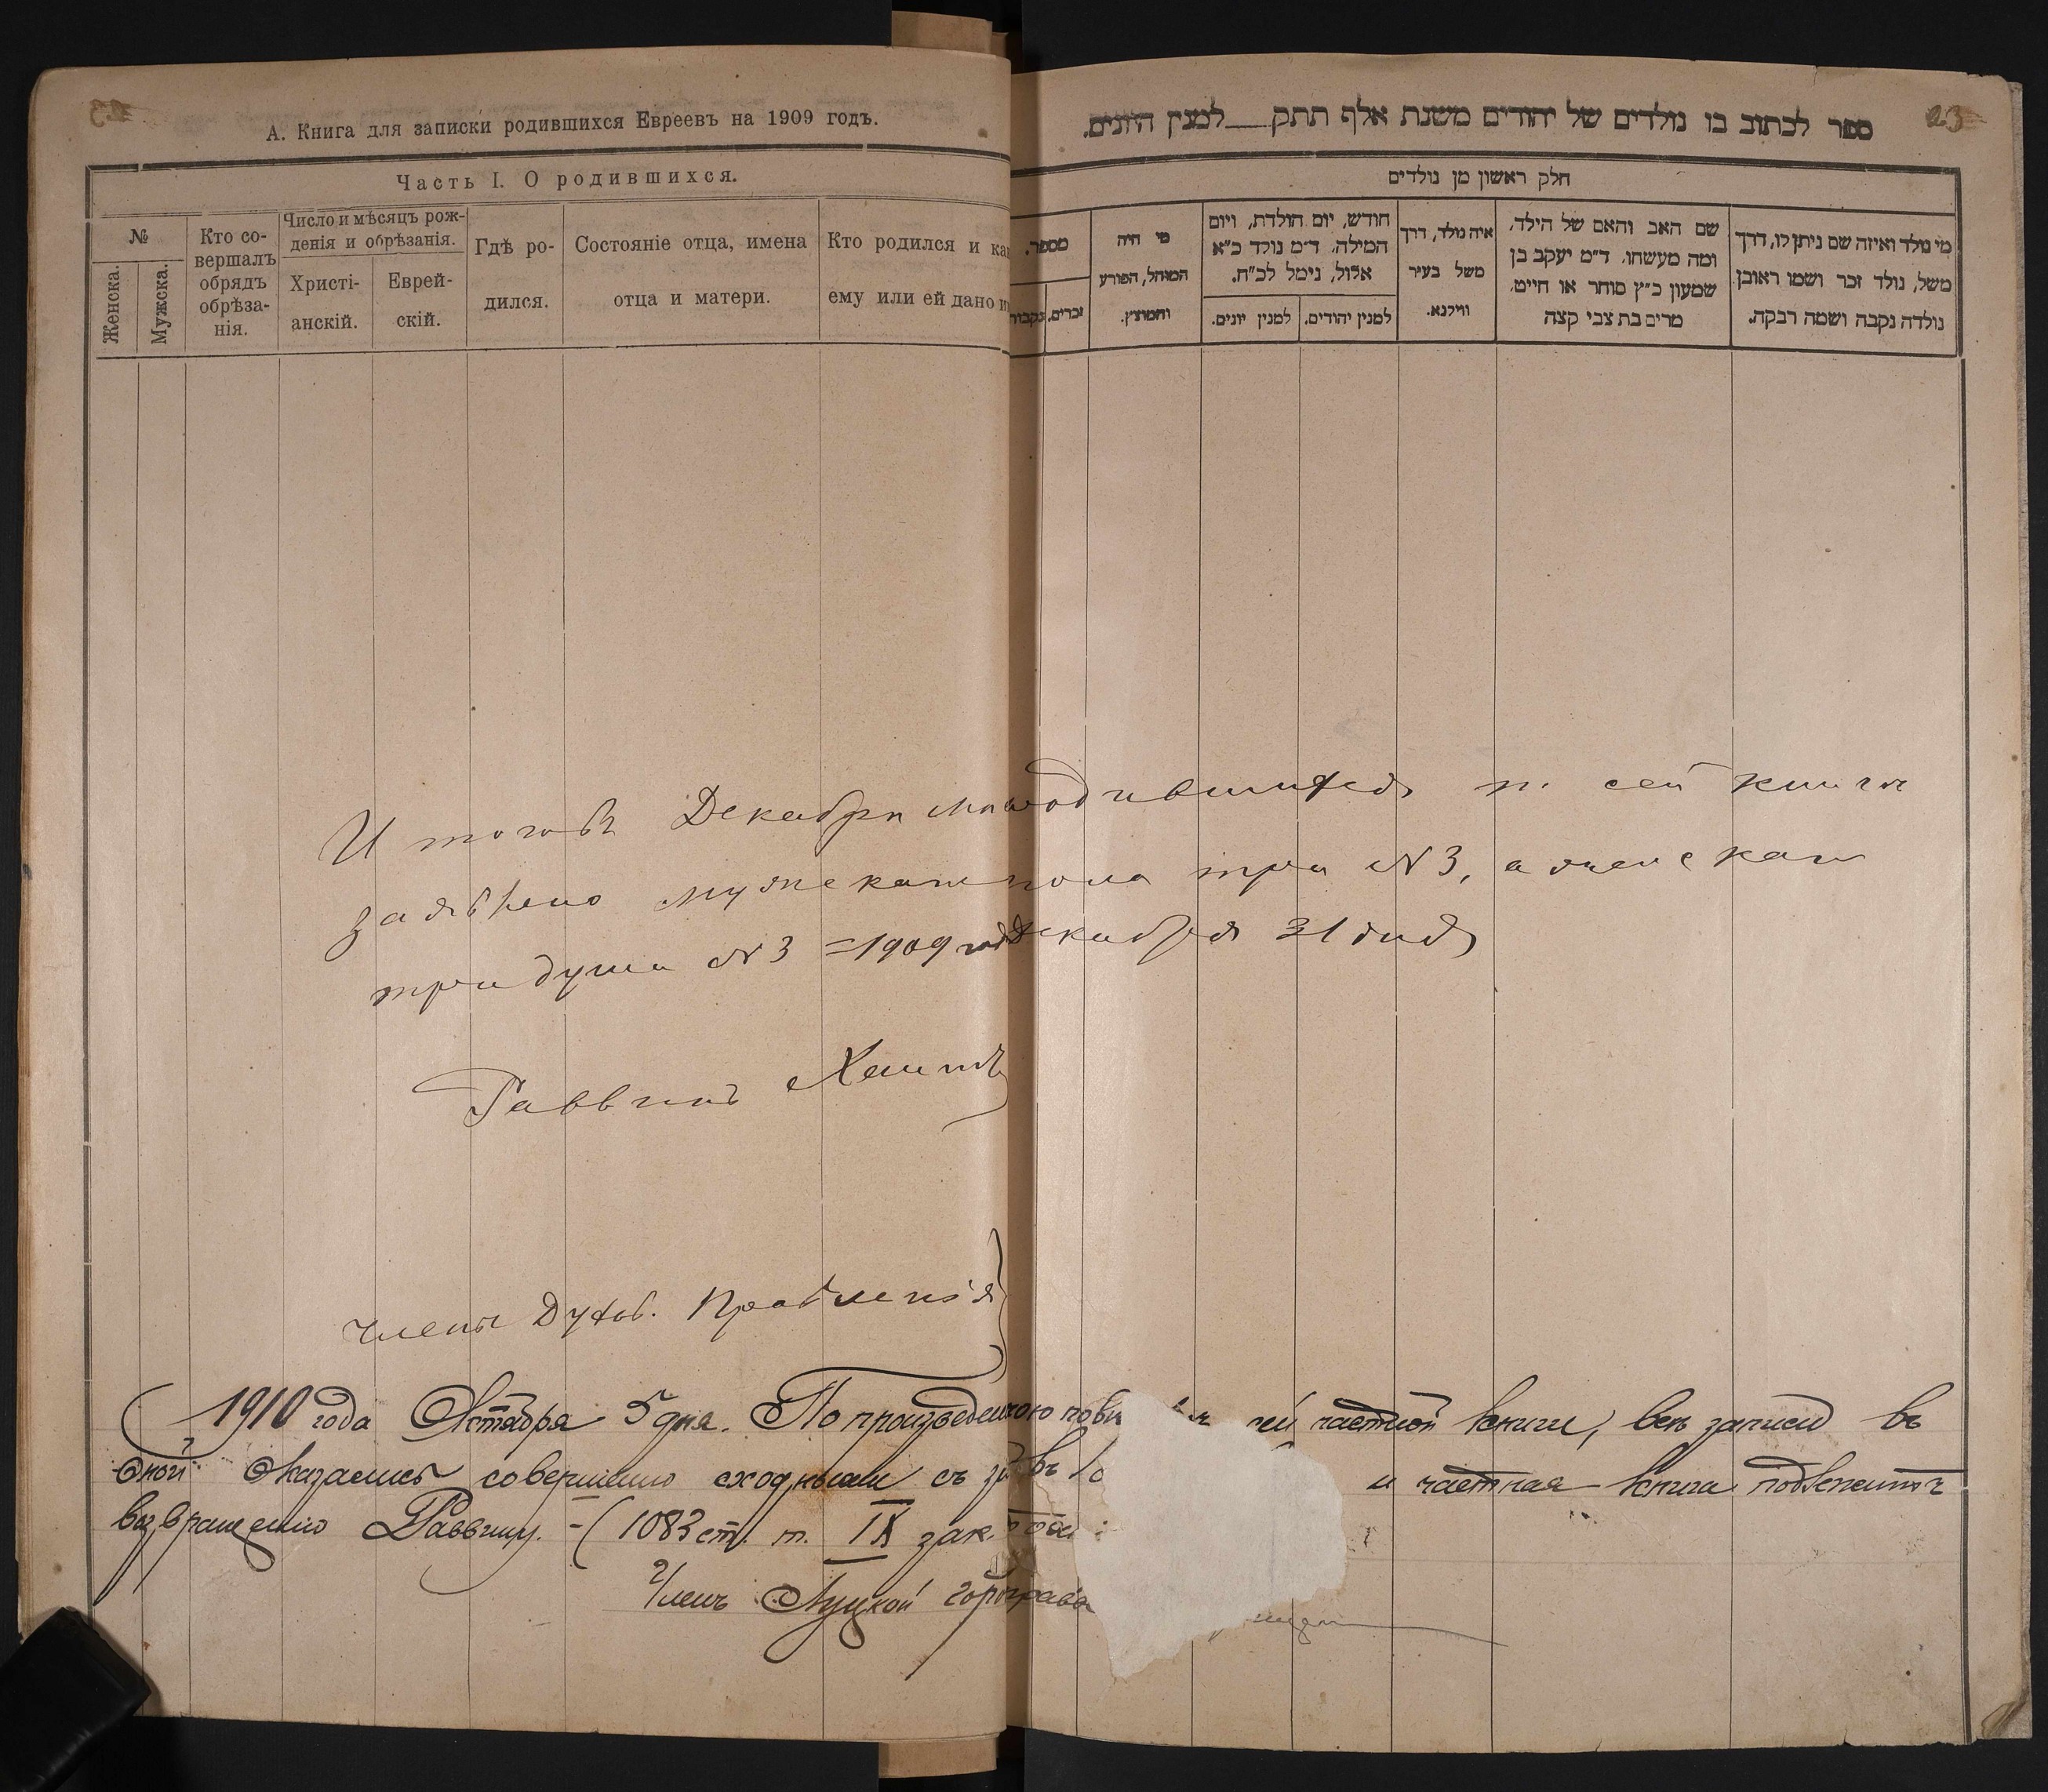 А. Книга для записки родившихся Евреевъ на 1909 годъ.
Часть I. О родившихся.
№
Женска.
Мужска.
Кто со-
вершалъ
обрядъ
обрѣза-
нія.
Число и мѣсяцъ рож-
денія и обрѣзанія.
Христі-
анскій.
Еврей-
скій.
Гдѣ ро-
дился.
Состояніе отца, имена
отца и матери.
Кто родился и ка
ему или ей дано и
23
ספר לכתוב בו נולדים של יהודים משנת אלף תתק למנין היונים.
חלק ראשון מן נולדים
מי נולד ואיזה שם ניתן לו, דרך
משל, נולד זכר ושמו ראובן
נולדה נקבה ושמה רבקה.
שם האב והאם של הילד,
ומה מעשהו, ד״מ יעקב בן
שמעון כ״ץ סוחר או חייט,
מרים בת צבי קצה
איה נולד, דרך
משל בעיר
ווילנא.
חודש, יום הולדת, ויום
המילה, ד״מ נולד כ״א
אלול, נימל לכ״ח.
למנין יהודים.
למנין יונים.
מי היה
המוהל, הפורע
והמוצץ.
מספר.
זכרים,
נקבות
Декабря сей книги
заявлено три №3, а женскаго
три души №3 = 1909 года Декабря 31 дня
Раввинъ
Члены Духов. Правленія
1910 года Октября 5 дня. По произведенною сей частной книги, всѣ записи въ
оной оказались совершенно сходными съ и частная книга подлежитъ
возвращенію Раввину. - (1083 ст. т. IX зак.
Членъ Луцкой